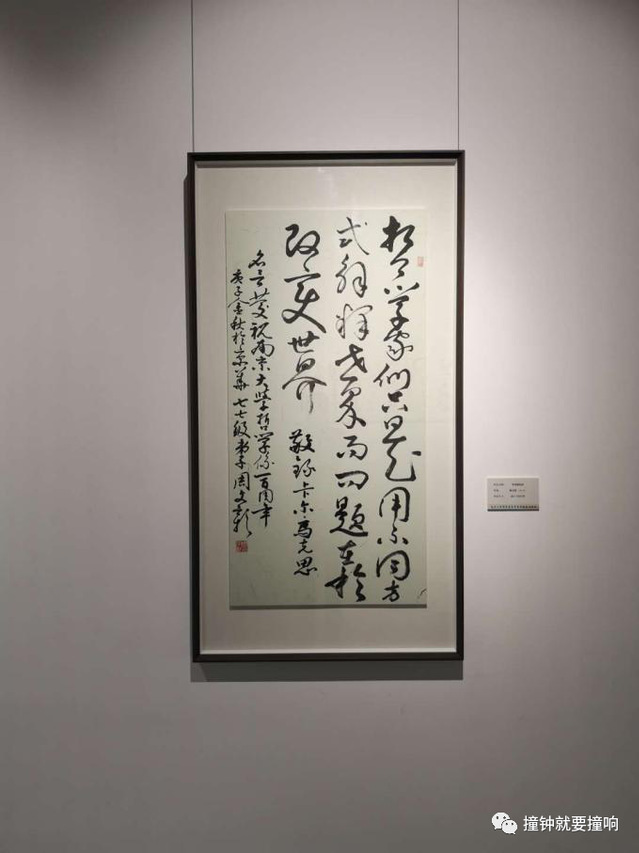 哲学家们只是用不同方
式解释世界而问题在于
改变世界 敬录卡尔马克思
名言庆祝南京大学哲学系一百周年
庚子金秋于京华 七七级弟子周文彰
撞钟就要撞响